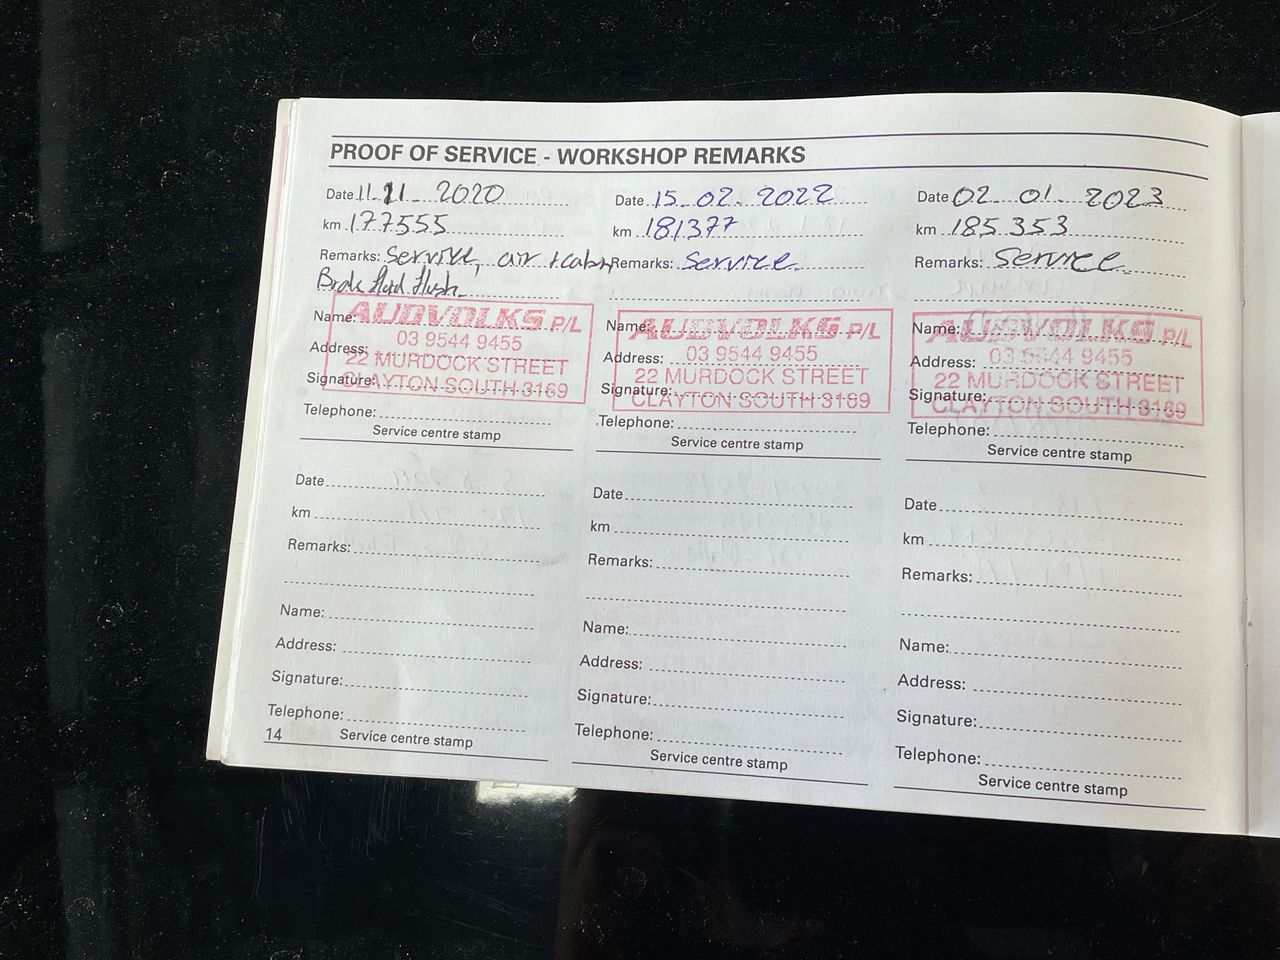 PROOF OF SERVICE - WORKSHOP REMARKS
Date 11 11 2020
km 177555
Remarks: Service, air + cabin
Brake fluid flush
Name:
AUDVOLKS P/L
Address:
03 9544 9455
22 MURDOCK STREET
Signature:
CLAYTON SOUTH 3169
Telephone:
Service centre stamp
Date 15.02.2022
km 181377
Remarks: Service
Name:
AUDVOLKS P/L
Address:
03 9544 9455
22 MURDOCK STREET
Signature:
CLAYTON SOUTH 3169
Telephone:
Service centre stamp
Date 02 01 2023
km 185.353
Remarks: Service
Name:
AUDVOLKS P/L
Address:
03 9544 9455
22 MURDOCK STREET
Signature:
CLAYTON SOUTH 3169
Telephone:
Service centre stamp
Date
km
Remarks:
Name:
Address:
Signature:
Telephone:
Service centre stamp
Date
km
Remarks:
Name:
Address:
Signature:
Telephone:
Service centre stamp
Date
km
Remarks:
Name:
Address:
Signature:
Telephone:
Service centre stamp
14